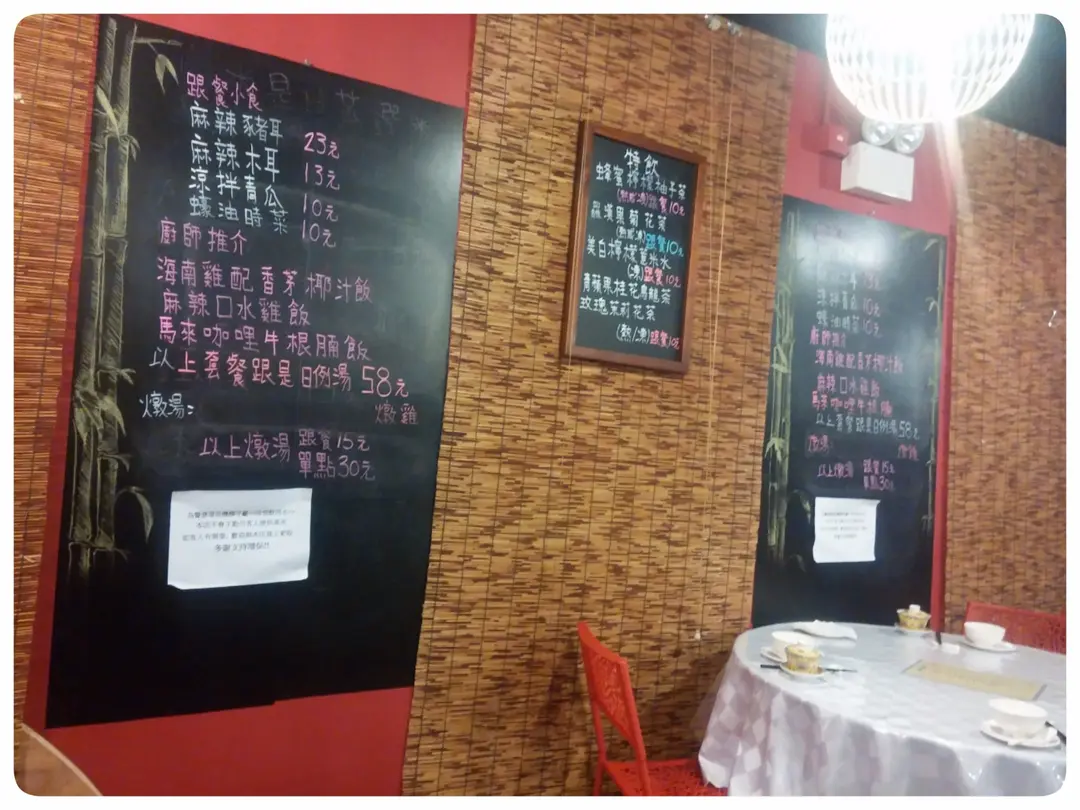 跟餐小食
麻辣豬耳 23元
麻辣木耳 13元
涼拌青瓜 10元
蠔油時菜 10元
廚師推介
海南雞配香茅椰汁飯
麻辣口水雞飯
馬來咖哩牛根腩飯
以上套餐跟是日例湯 58元
燉湯: 燉雞
以上燉湯 跟餐15元
單點30元
多謝支持環保
特飲
蜂蜜檸檬柚子茶
(熱/凍)跟餐10元
羅漢果菊花茶
(熱/凍)跟餐10元
美白檸檬薏米水
(凍)跟餐10元
青蘋果桂花烏龍茶
玫瑰茉莉花茶
(熱/凍)跟餐10元
涼拌青瓜 10元
蠔油時菜 10元
廚師推介
海南雞配香茅椰汁飯
麻辣口水雞飯
馬來咖哩牛根腩
以上套餐跟是日例湯 58元
燉湯
以上燉湯 跟餐15元
單點30元